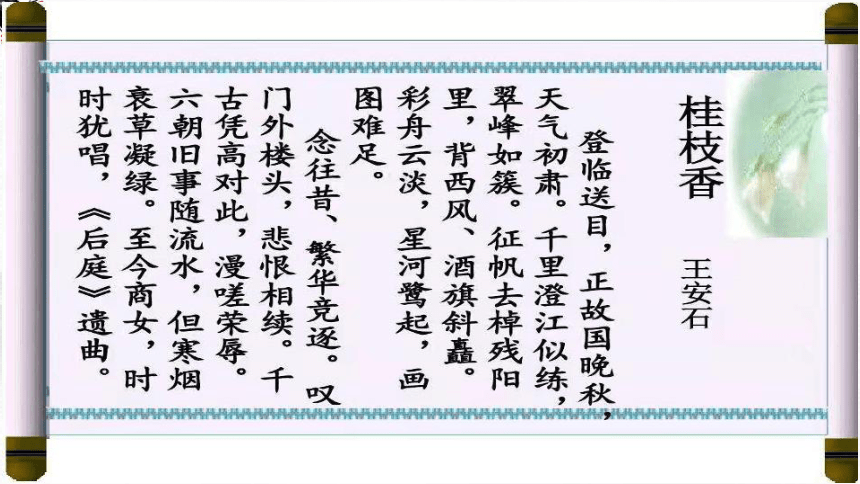 桂枝香 王安石
登临送目，正故国晚秋，
天气初肃。千里澄江似练，
翠峰如簇。征帆去棹残阳
里，背西风、酒旗斜矗。
彩舟云淡，星河鹭起，画
图难足。
念往昔、繁华竞逐。叹
门外楼头，悲恨相续。千
古凭高对此，漫嗟荣辱。
六朝旧事随流水，但寒烟
衰草凝绿。至今商女，时
时犹唱，《后庭》遗曲。